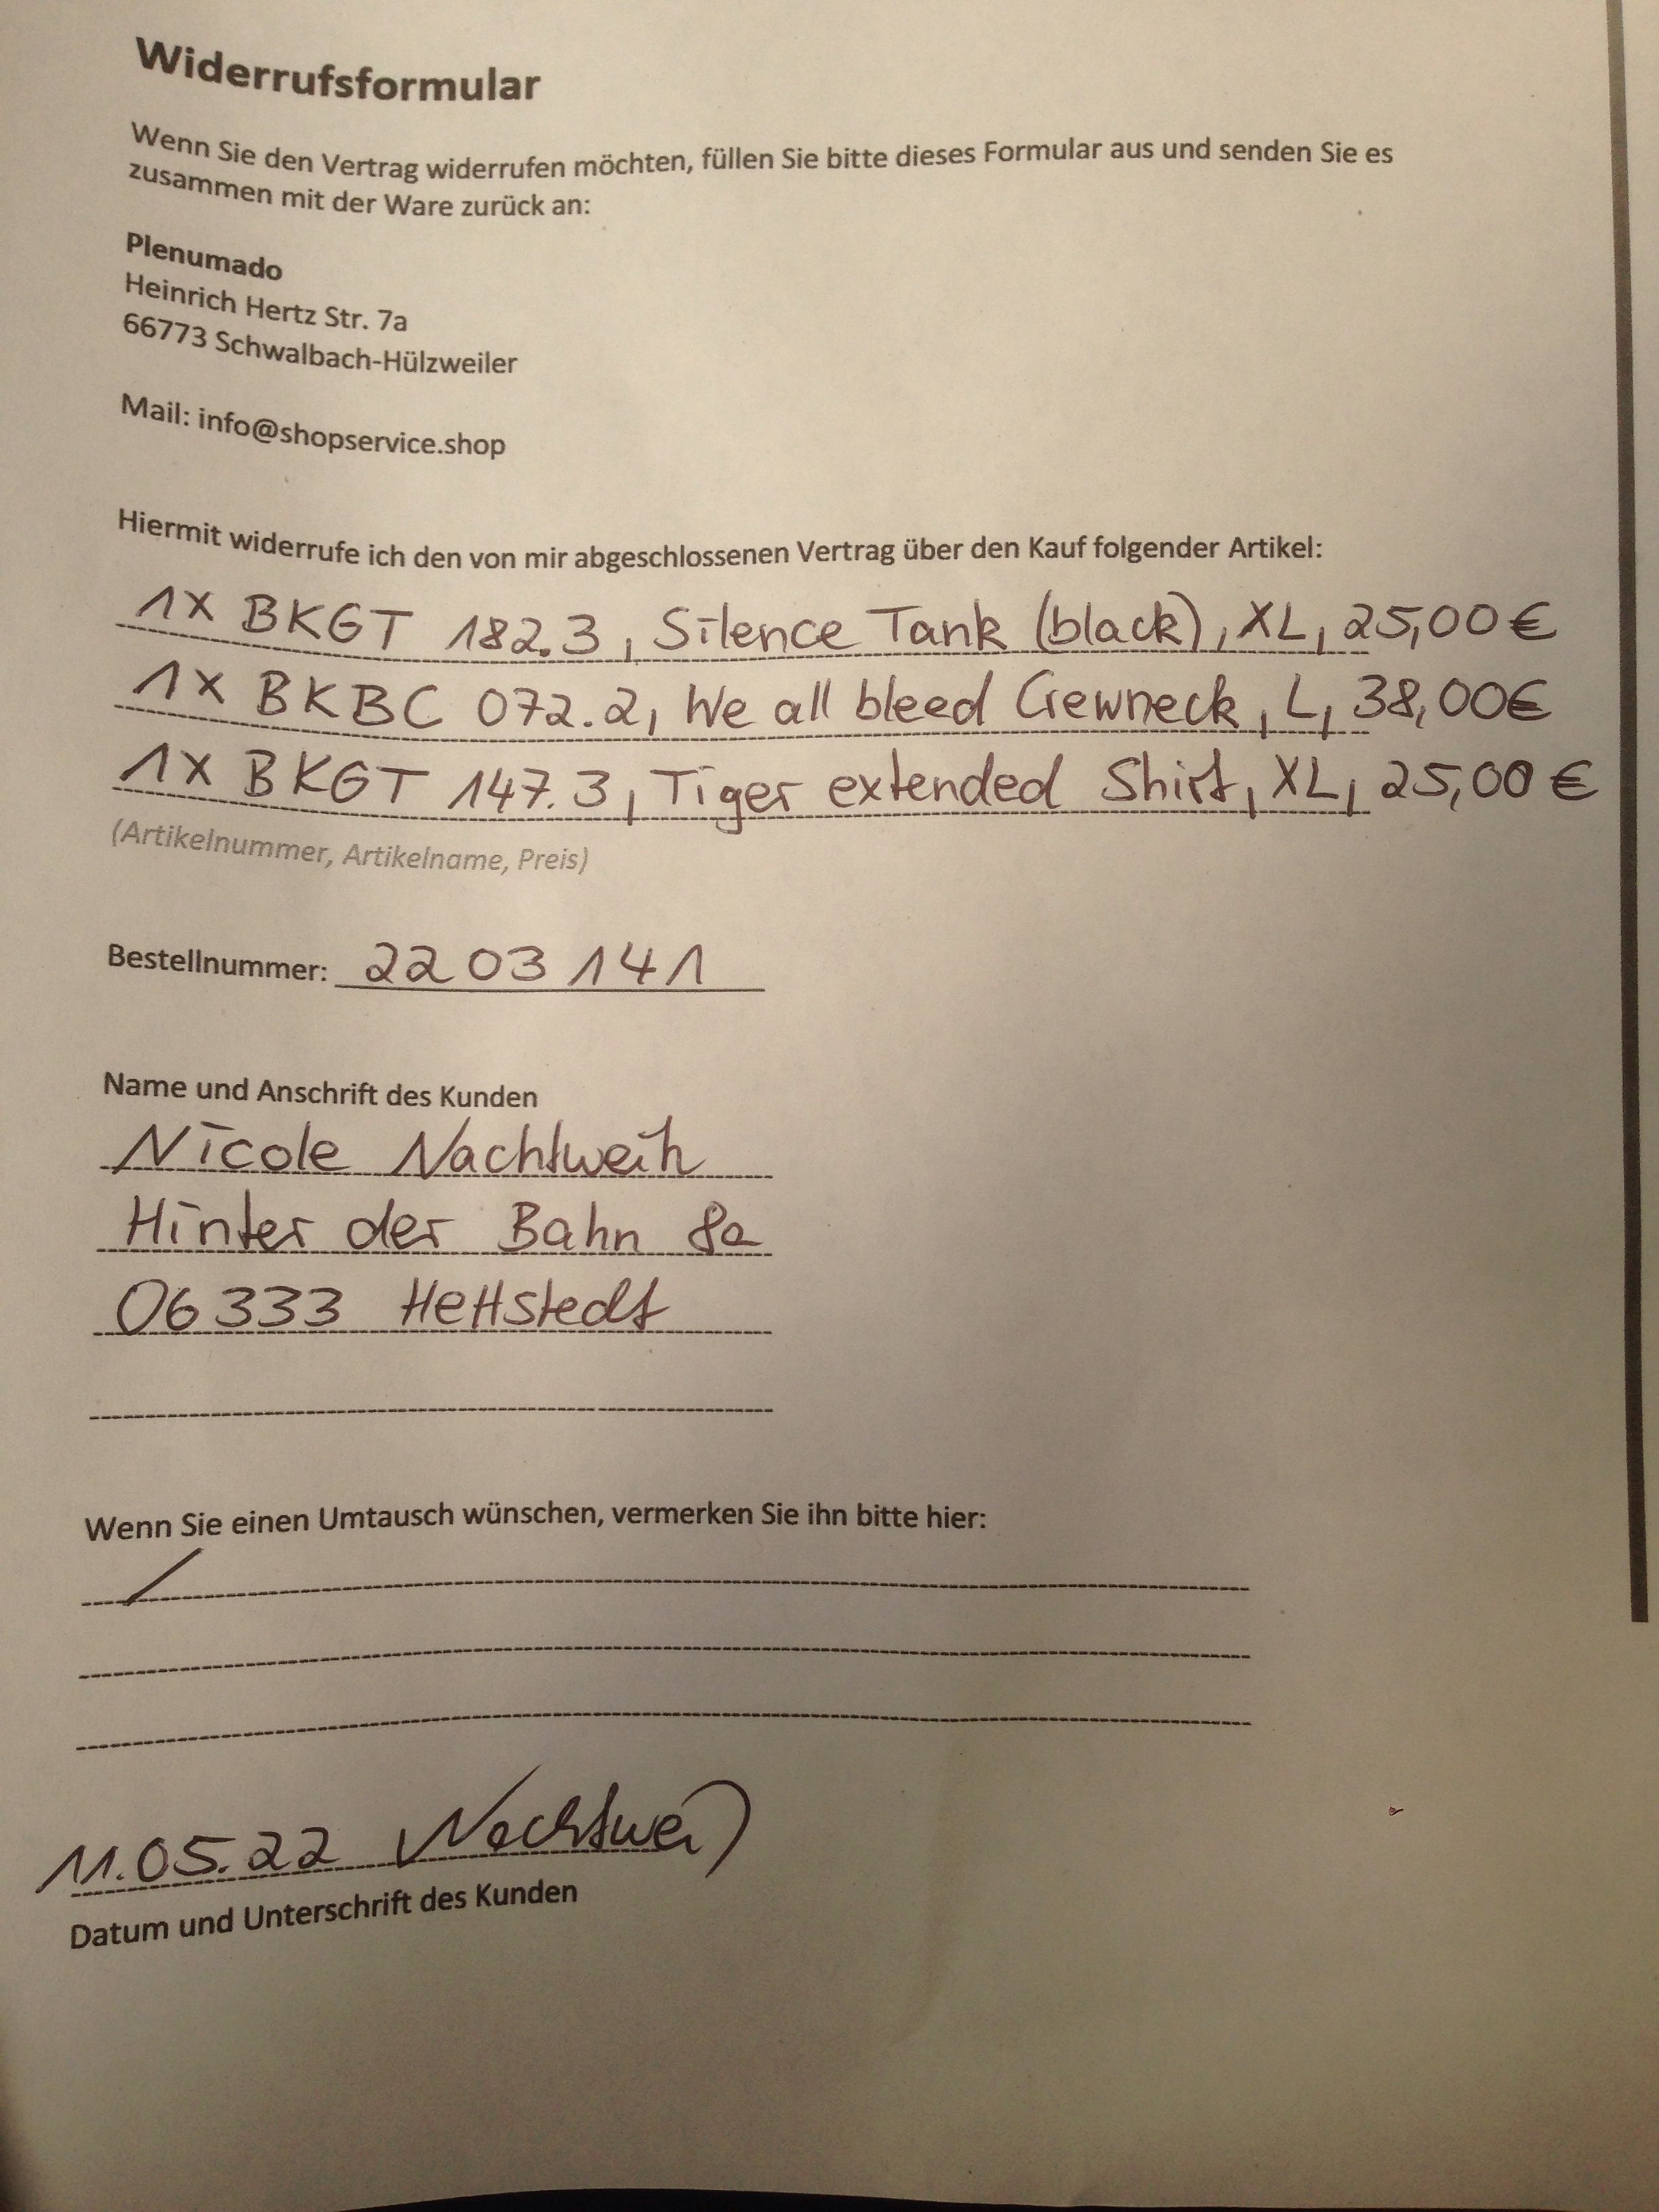 Widerrufsformular
Wenn Sie den Vertrag widerrufen möchten, füllen Sie bitte dieses Formular aus und senden Sie es
zusammen mit der Ware zurück an:
Plenumado
Heinrich Hertz Str. 7a
66773 Schwalbach-Hülzweiler
Mail: info@shopservice.shop
Hiermit widerrufe ich den von mir abgeschlossenen Vertrag über den Kauf folgender Artikel:
1x BKGT 182.3, Silence Tank (black), XL, 25,00 €
1x BKBC 072.2, We all bleed Crewneck, L, 38,00€
1x BKGT 147.3, Tiger extended Shirt, XL, 25,00 €
(Artikelnummer, Artikelname, Preis)
Bestellnummer: 2203141
Name und Anschrift des Kunden
Nicole Nachtweih
Hinter der Bahn 8a
06333 Hettstedt
Wenn Sie einen Umtausch wünschen, vermerken Sie ihn bitte hier:
/
11.05.22 Nachtwei
Datum und Unterschrift des Kunden